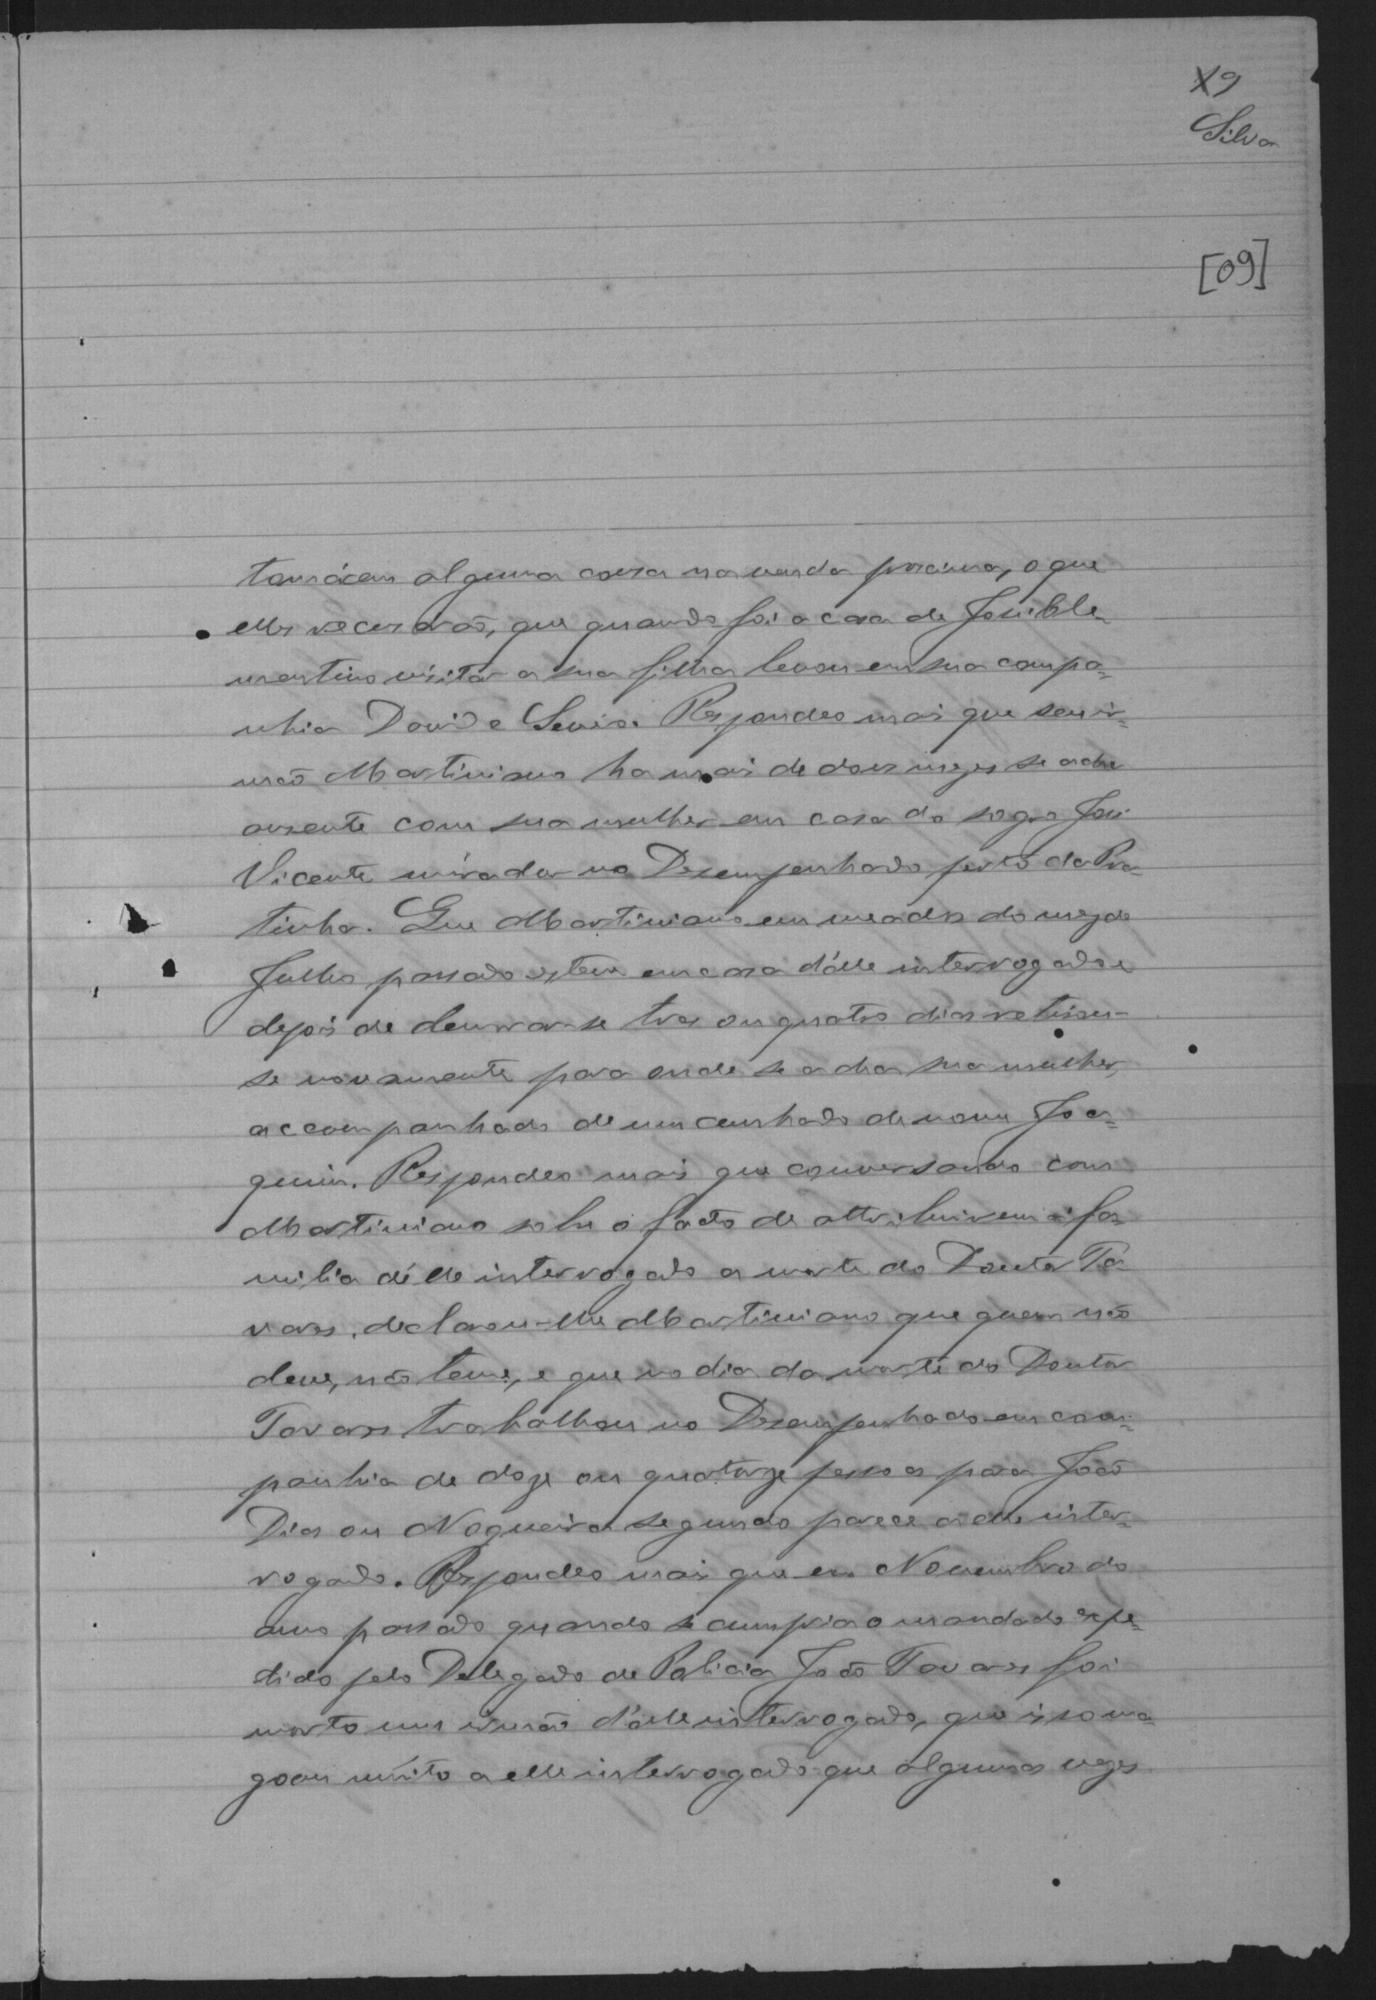 X9
Silva
[09]
tomácem alguma coisa na venda proxima, o que
elles recusárão, que quando foi a casa de José Cle=
mentino visitár a sua filha levou em sua compa=
nhia David e Senis. Respondeo mais que seu ir=
mão Martiniano ha mais de dous mezes se acha
ausente com sua mulher em casa do sogro José
Vicente mórador no Desempenhado perto da Pra
tinha. Que Martiniano em meados do mez de
Julho passado esteve em casa d'élle interrogado e
depois de demorar-se tres ou quatro dias retirou-
se novamente para onde se acha sua mulher,
accompanhado de um cunhado de nome Joa=
quim. Respondeo mais que conversando com
Martiniano sobre o facto de attribuirem á fa=
milia d'élle interrogado a morte do Doutor Ta
vares, declarou-lhe Martiniano que quem não
deve, não teme, e que no dia da morte do Doutor
Tavares trabalhou no Desempenhado em com=
panhia de doze ou quatorze pessoas para João
Dias ou Nogueira segundo parece a elle inter=
rogado. Respondeo mais que em Novembro do
anno passado quando se cumpria o mandado expe=
dido pelo Delegado de Policia João Tavares foi
morto um irmão d'élle interrogado, que isso ma
goou muito a elle interrogado que algumas vezes